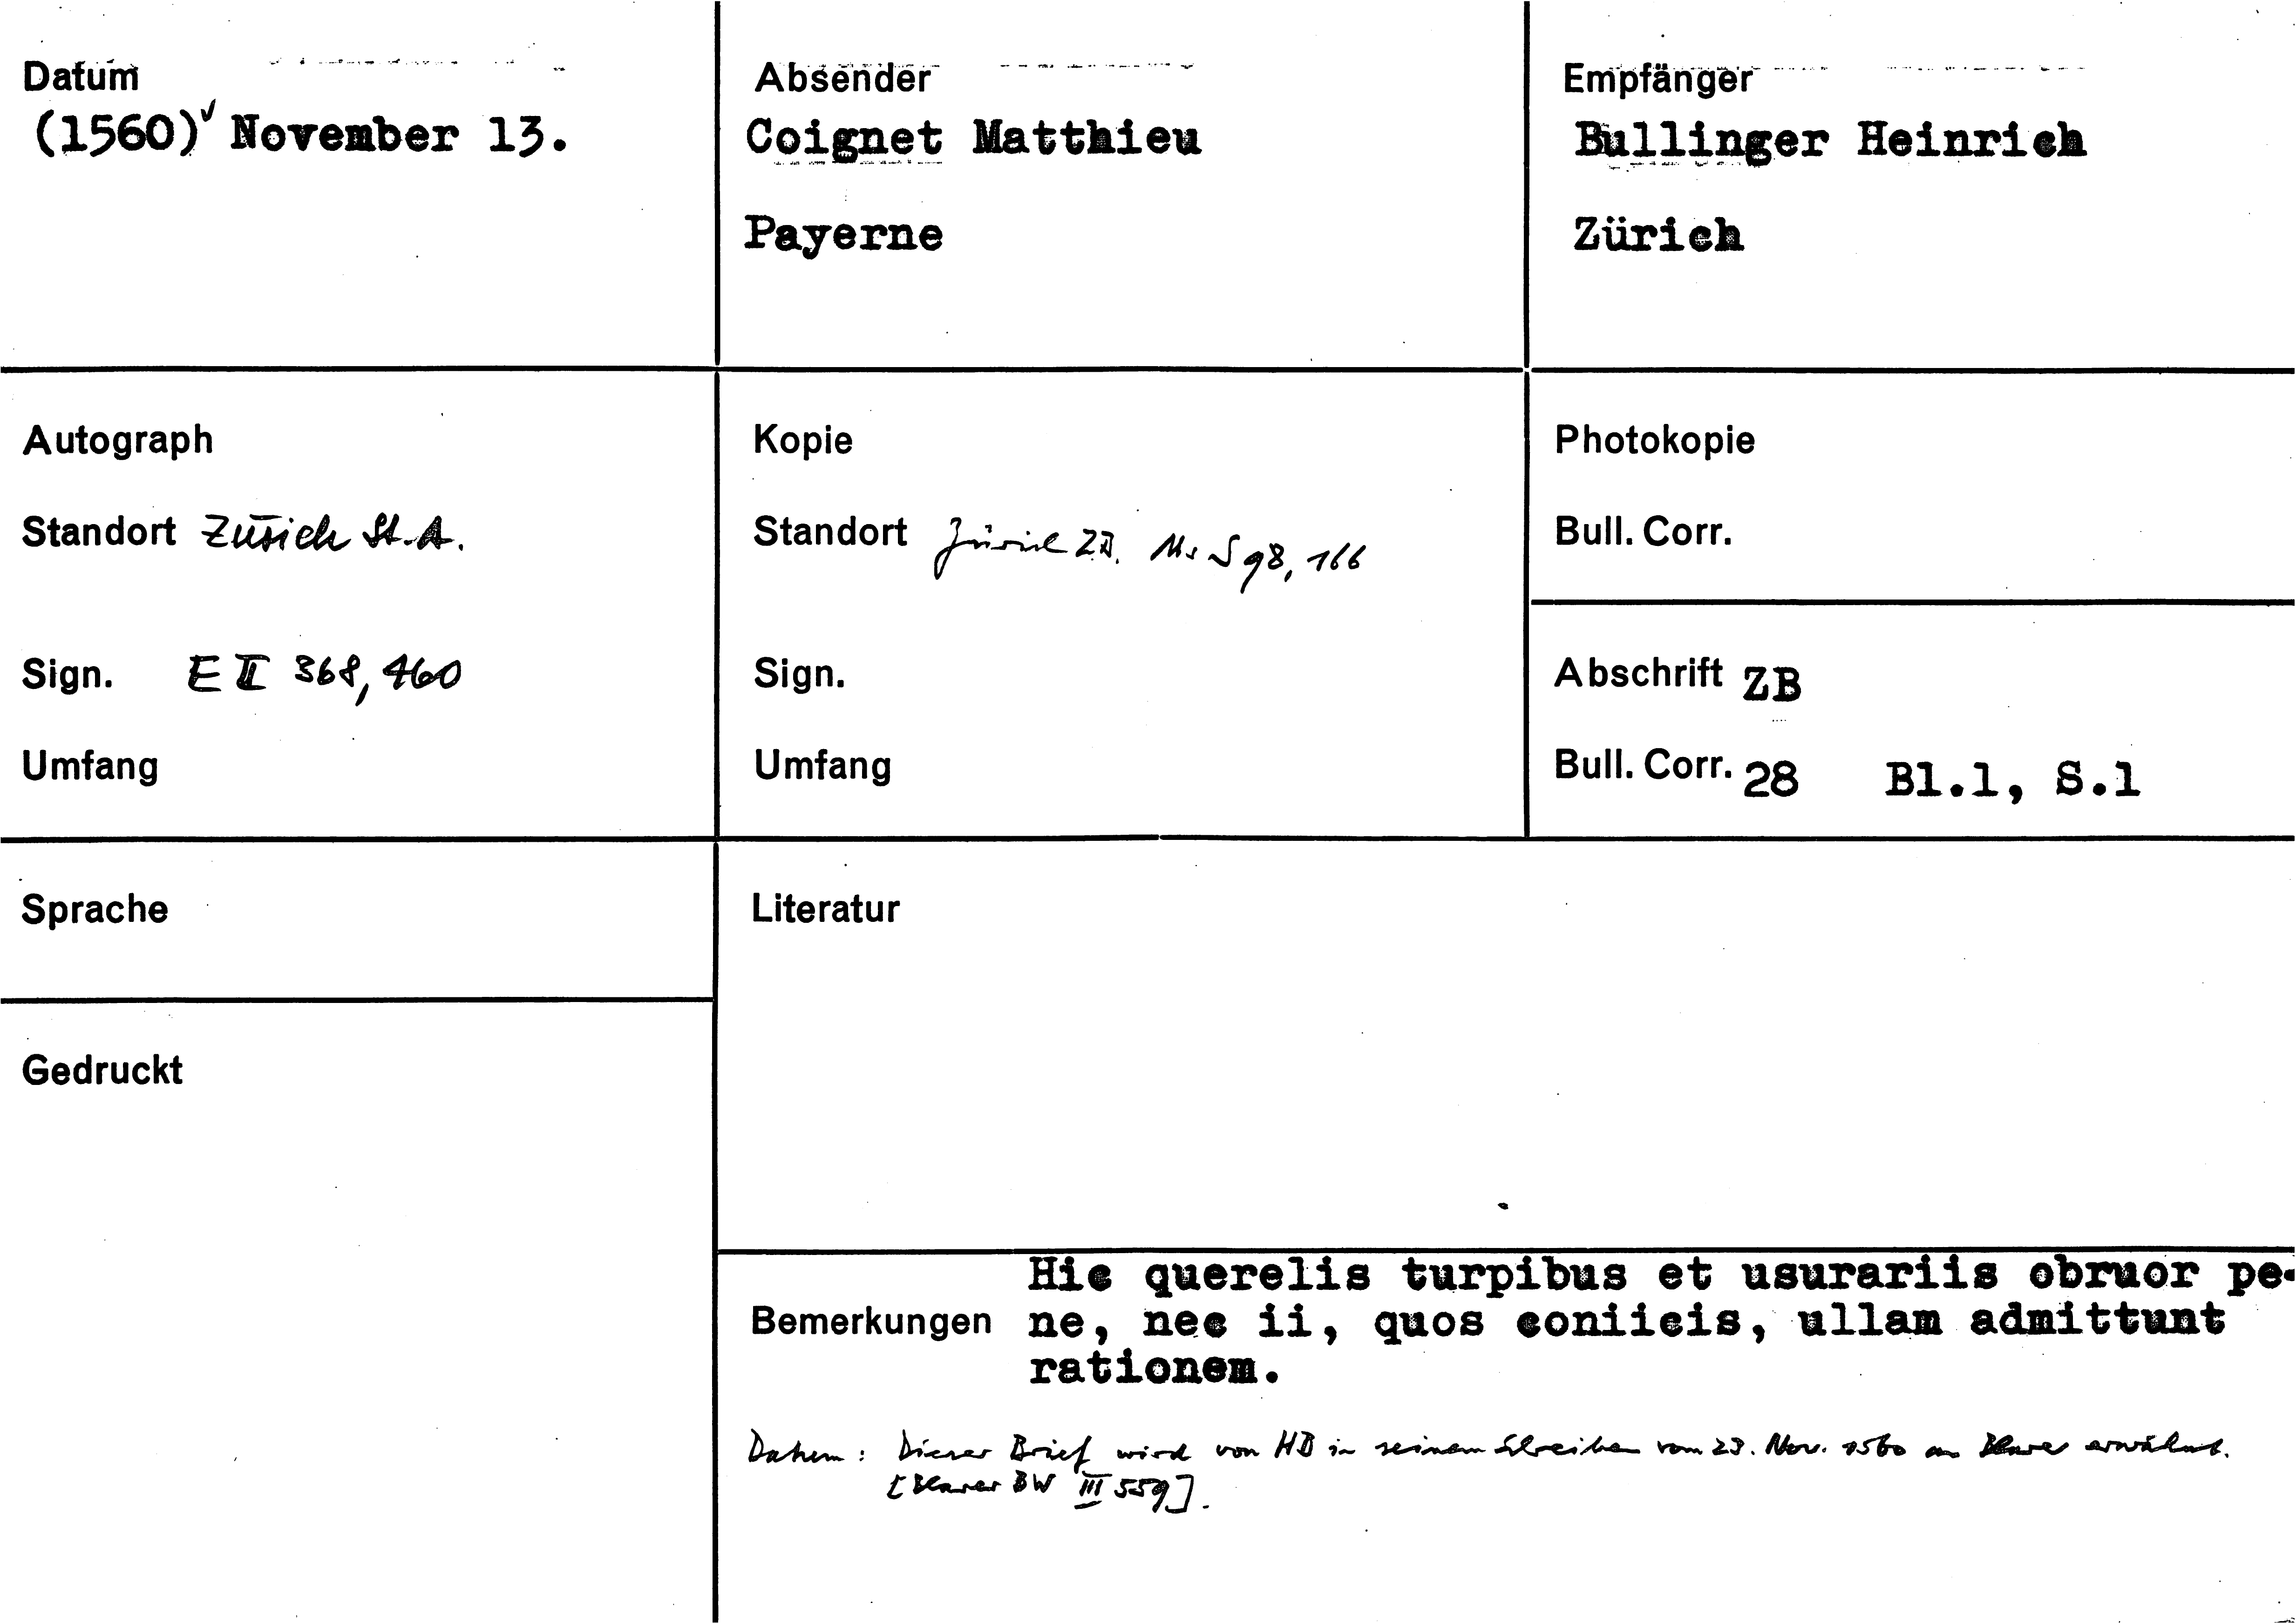 Datum
(1560)✓ November 13.
Absender
Coignet Matthieu
Payerne
Empfänger
Bullinger Heinrich
Zürich
Autograph
Standort Zürich St.A.
Sign. E II 368, 460
Umfang
Kopie
Standort Zürich ZB. Ms S 98, 166
Sign.
Umfang
Photokopie
Bull. Corr.
Abschrift ZB
Bull. Corr. 28 Bl.1, S.1
Sprache
Gedruckt
Literatur
Bemerkungen
Hic querelis turpibus et usurariis obruor pe-
ne, nec ii, quos coniicis, ullam admittunt
rationem.
Datum: Dieser Brief wird von HB in seinem Schreiben vom 23. Nov. 1560 an Blarer erwähnt.
[Blarer BW III 559].